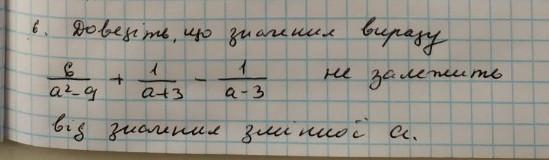 6. Доведіть, що значення виразу
6/(a²-9) + 1/(a+3) - 1/(a-3) не залежить
від значення змінної a.